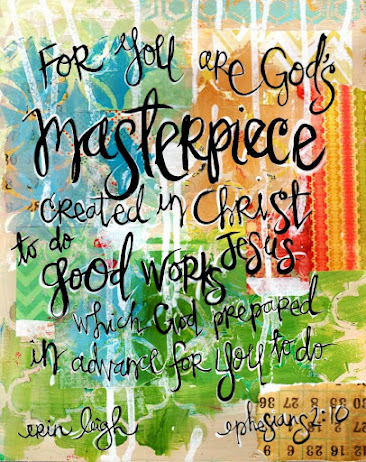 FOR YOU ARE GOD'S
masterpiece
created in CHRIST
to do JESUS
good works
which God prepared
in advance for you to do
erin leigh ephesians 2:10
27 36